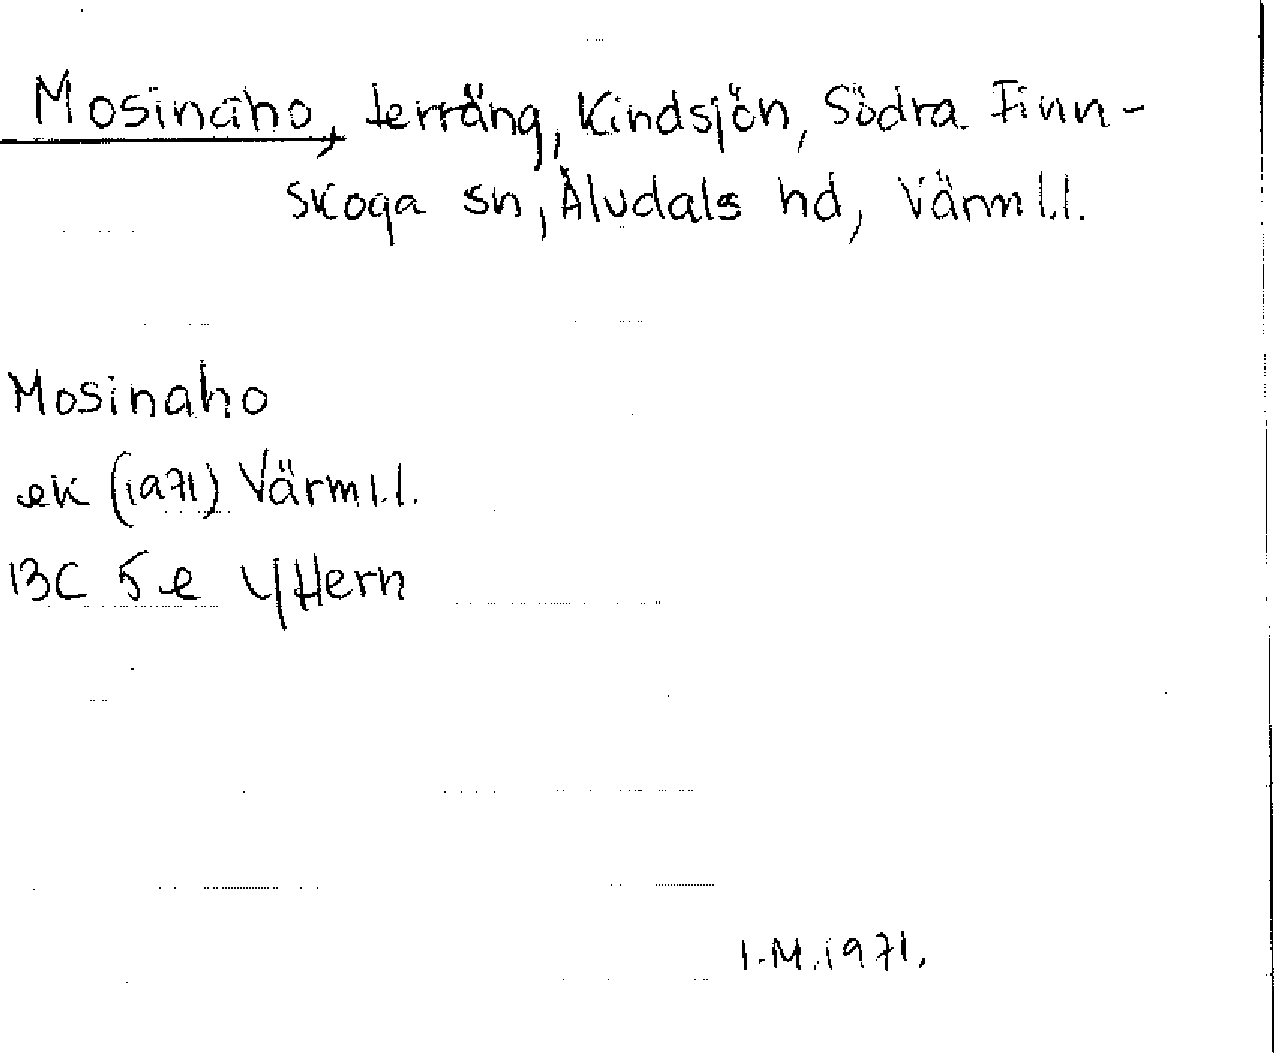 Mosinaho, terräng, Kindsjön, Södra Finn-
skoga sn, Älvdals hd, Värml.l.
Mosinaho
ek (1971) Värml.l.
13C 5e Yttern
I.M.1971.